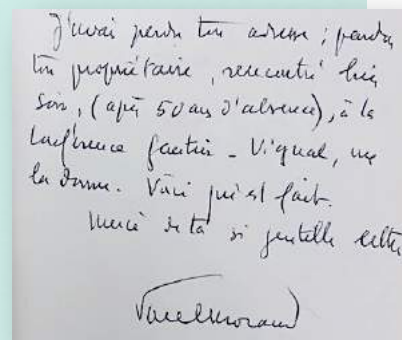 J'avais perdu ton adresse ; 
ton propriétaire, rencontré hier
soir, (après 50 ans d'absence), à la
Conférence Gautier-Vignal, me
la donne. Voici qui est fait.
Merci de ta si gentille lettre
Paul Morand